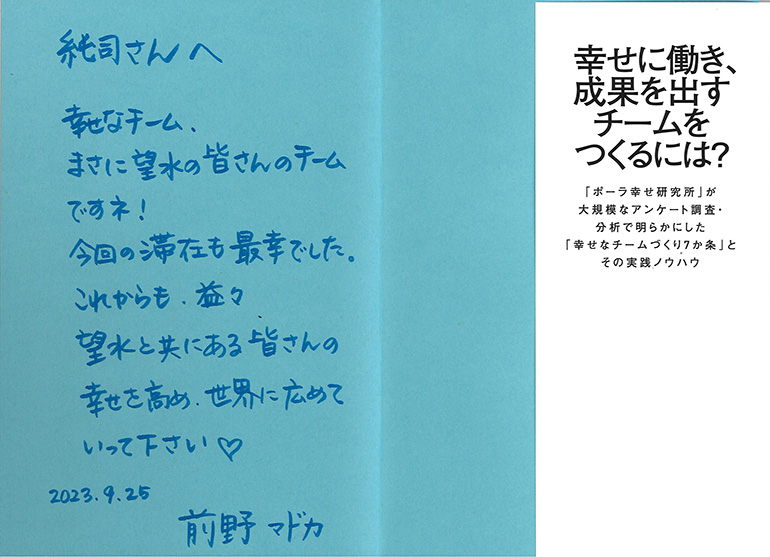 純司さんへ
幸せなチーム、
まさに望水の皆さんのチーム
ですネ！
今回の滞在も最幸でした。
これからも、益々
望水と共にある皆さんの
幸せを高め、世界に広めて
いって下さい♡
2023.9.25
前野 マドカ
幸せに働き、
成果を出す
チームを
つくるには?
「ポーラ幸せ研究所」が
大規模なアンケート調査・
分析で明らかにした
「幸せなチームづくり7か条」と
その実践ノウハウ